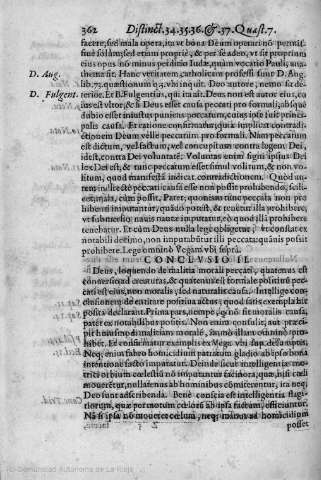 362 Distinct. 34.35.36. & 37. Quæst. 7.
facere, sed mala opera, in vt bona Deum operari nō permis-
sine solùm, sed etiam propriè, & per se adeò, vt sit proprium
eius opus nō minus perditio Iudæ, quàm vocatio Pauli; ana-
thema sit. Hanc veritatem catholicam professi sunt D. Aug.
D. Aug.
lib. 72. quæstionum q. 3. vbi inquit. Deo autore, nemo fit de-
D. Fulgent. terior. Et B. Fulgentius, qui ita ait. Deus non est autor eius, cu
ius est vltor, & si Deus esset causa peccati pro formali, absque
dubio esset iniustus puniens peccatum, cuius ipse fuit princi-
palis causa. Et ratione confirmatur, quia implicat contradi-
ctionem Deum velle peccatum pro formali. Nam peccatum
est dictum, vel factum, vel concupitum contra legem Dei,
idest, contra Dei voluntatē. Voluntas enim signi ipsius Dei
lex Dei est, & tunc peccatum esset simul volitum, & non vo-
litum, quod manifestā indicat contradictionem. Quòd au-
tem indirectè peccati causa esse non possit prohibendo, scili-
cet malū, cùm possit. Patet: quoniam tunc peccata non pro
hibenti imputantur, quādo potest, & tenetur illa prohibere,
vt submersio nauis nautæ imputatur, eò quòd illā prohibere
tenebatur. Et cùm Deus nulla lege obligetur, vt constat ex
notabili decimo, non imputabūtur illi peccata quamuis possit
prohibere. Lege omnino Vegam vbi suprà.
CONCLVSIO II.
Deus, loquendo de malitia morali peccati, quatenus est
conuersio ad creaturas, & quatenus est formale positiuū pec-
cati est eius, non moralis, sed naturalis causa. Intellige con-
clusionem de entitate positiua actus; quod satis exempla hic
posita declarant. Prima pars, nempè, q̃ nō sit moralis causa,
patet ex notabilibus positis. Non enim consulit, aut præci-
pit huiusmodi malitiam moralē, immò illam omninò pro-
hibet. Et confirmatur exemplis ex Vega vbi sup. desumptis.
Neq; enim fabro homicidium patratum gladio ab ipso bona
intentione facto imputatur. Deinde sicut intelligentiæ mo-
trici orbium cœlestiū nō imputantur facinora, quæ, nisi cœli
mouerētur, nullatenus ab hominibus cōmitterentur, ita neq;
Deo sunt adscribenda. Benè conscia est intelligentia flagi-
tiorum, quæ per motum cœlorū ab ipsa factum, efficiuntur.
Nā si ipsa nō moueret cœlum, neq; manus ad homicidium
posset